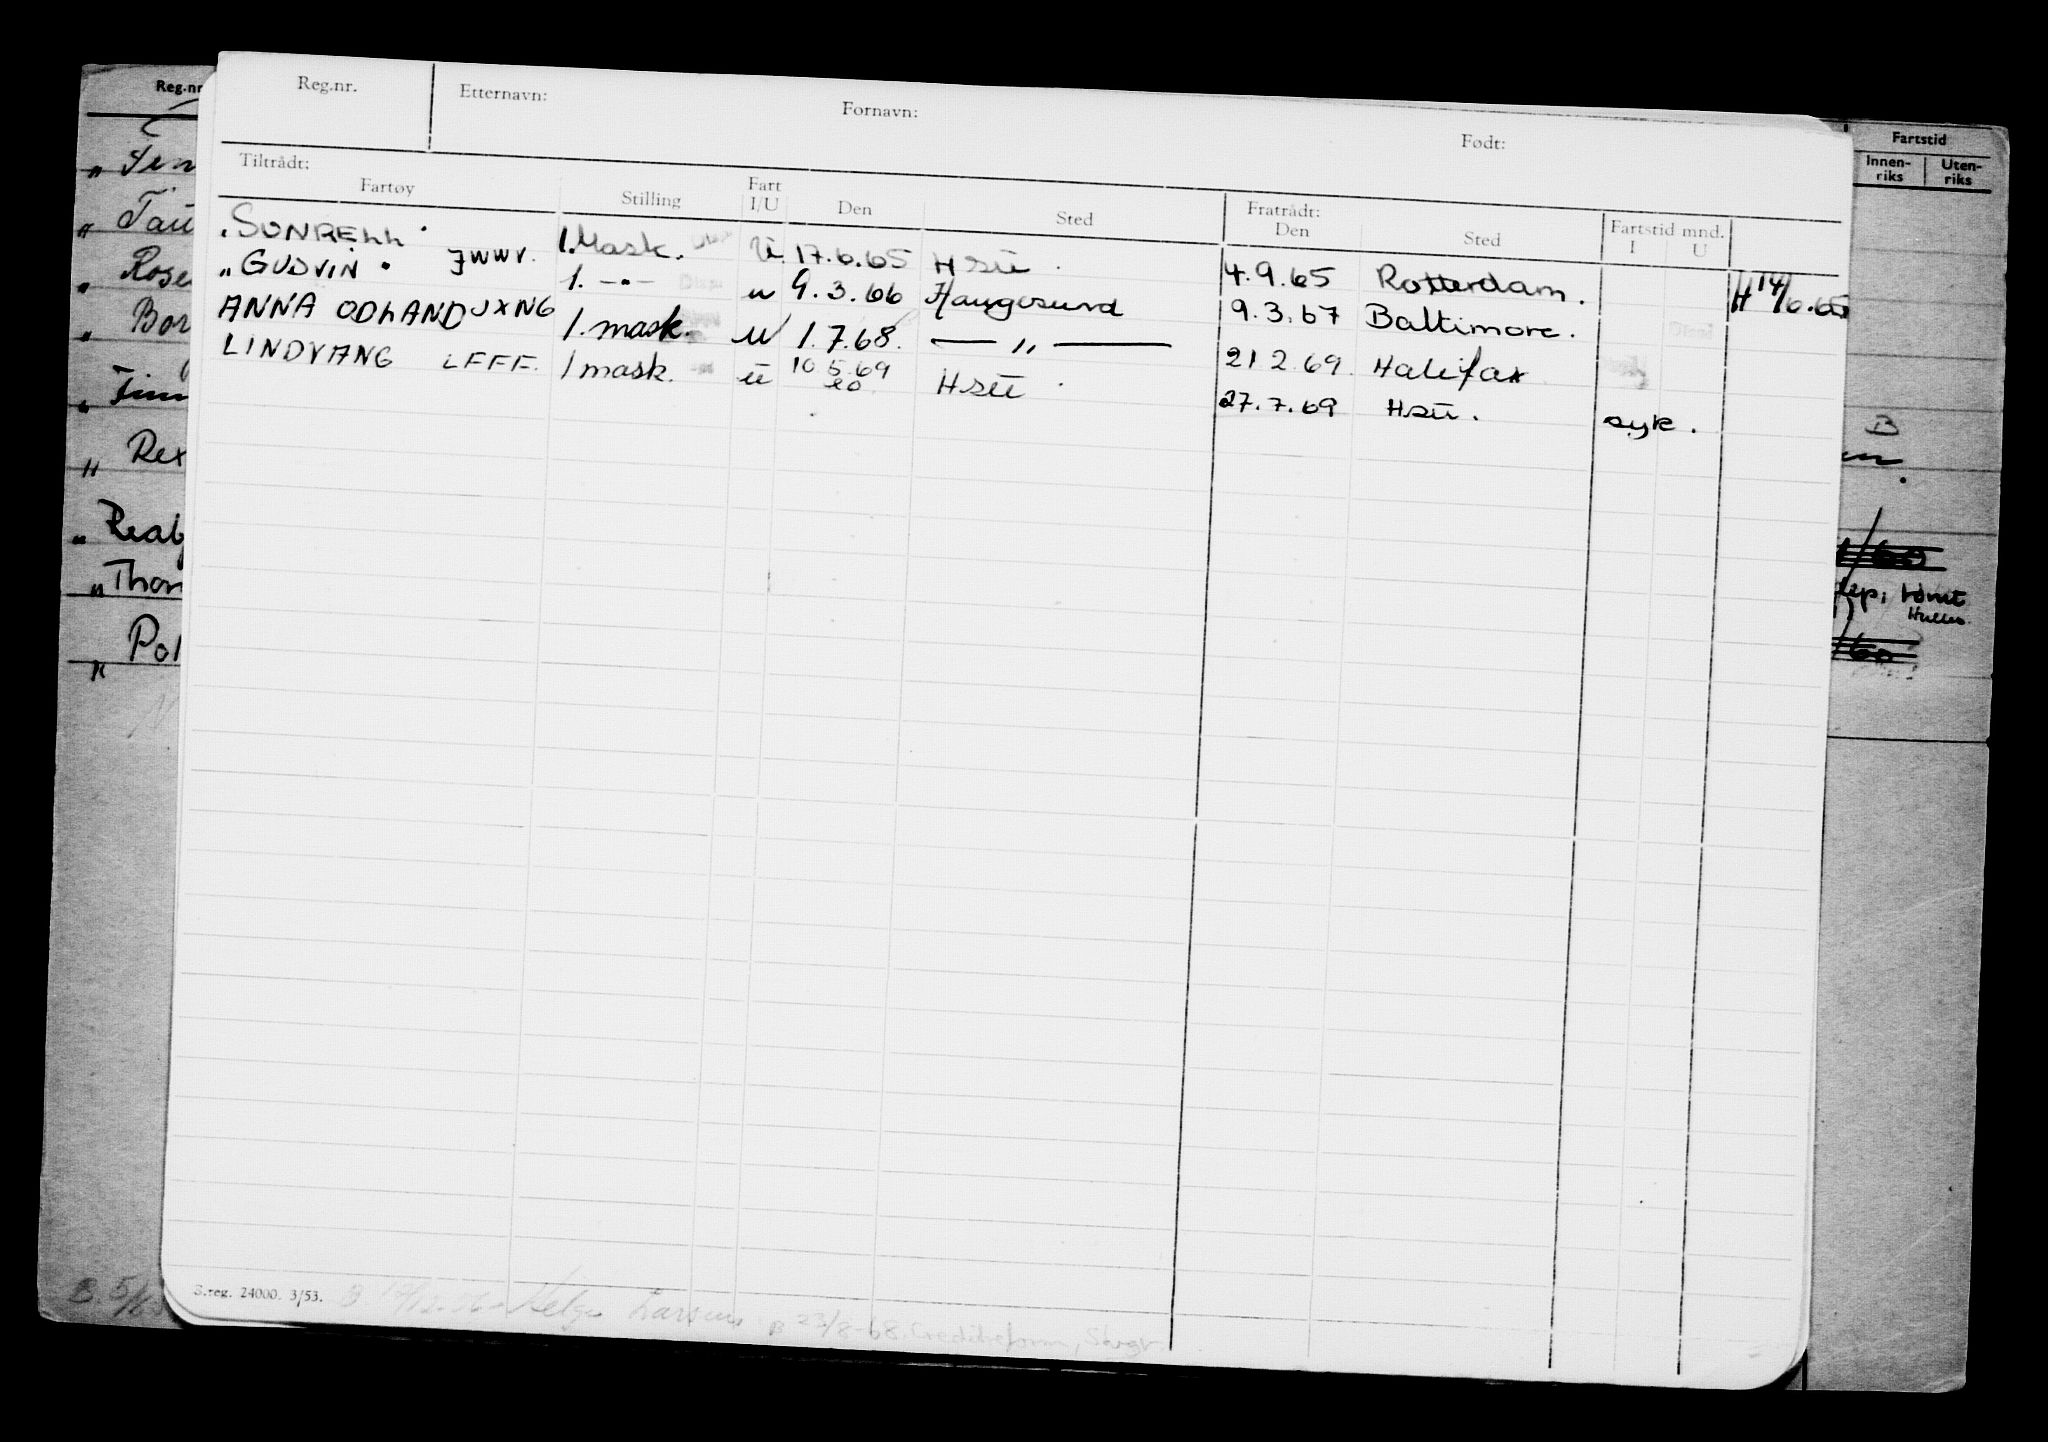 Reg.nr. Etternavn: Fornavn: Født:
Tiltrådt: Fratrådt:
Fartøy Stilling Fart I/U Den Sted Den Sted Fartstid mnd. I U
"SUNRELL" JWWV. 1. Mask. U. 17.6.65 Hsu. 4.9.65 Rotterdam. H 14/6.65
"GUDVIN" 1. -"- u 9.3.66 Haugesund 9.3.67 Baltimore.
ANNA ODLAND JXNG 1. mask. U 1.7.68. — „ — 21 2.69. Halifax
LINDVANG LFFF. 1 mask. u 10 5.69 Hsu. 27.7.69 Hsu. syk.
20
S.reg. 24000. 3/53. B Helga Larsen B 23/8-68.
Reg.nr
Fartstid
Innen-riks Uten-riks
" Tau
" Rose
" Bor
" Finn
" Rex
B
" Realf
" Thor
dep, tomt
" Pol
B. 5/